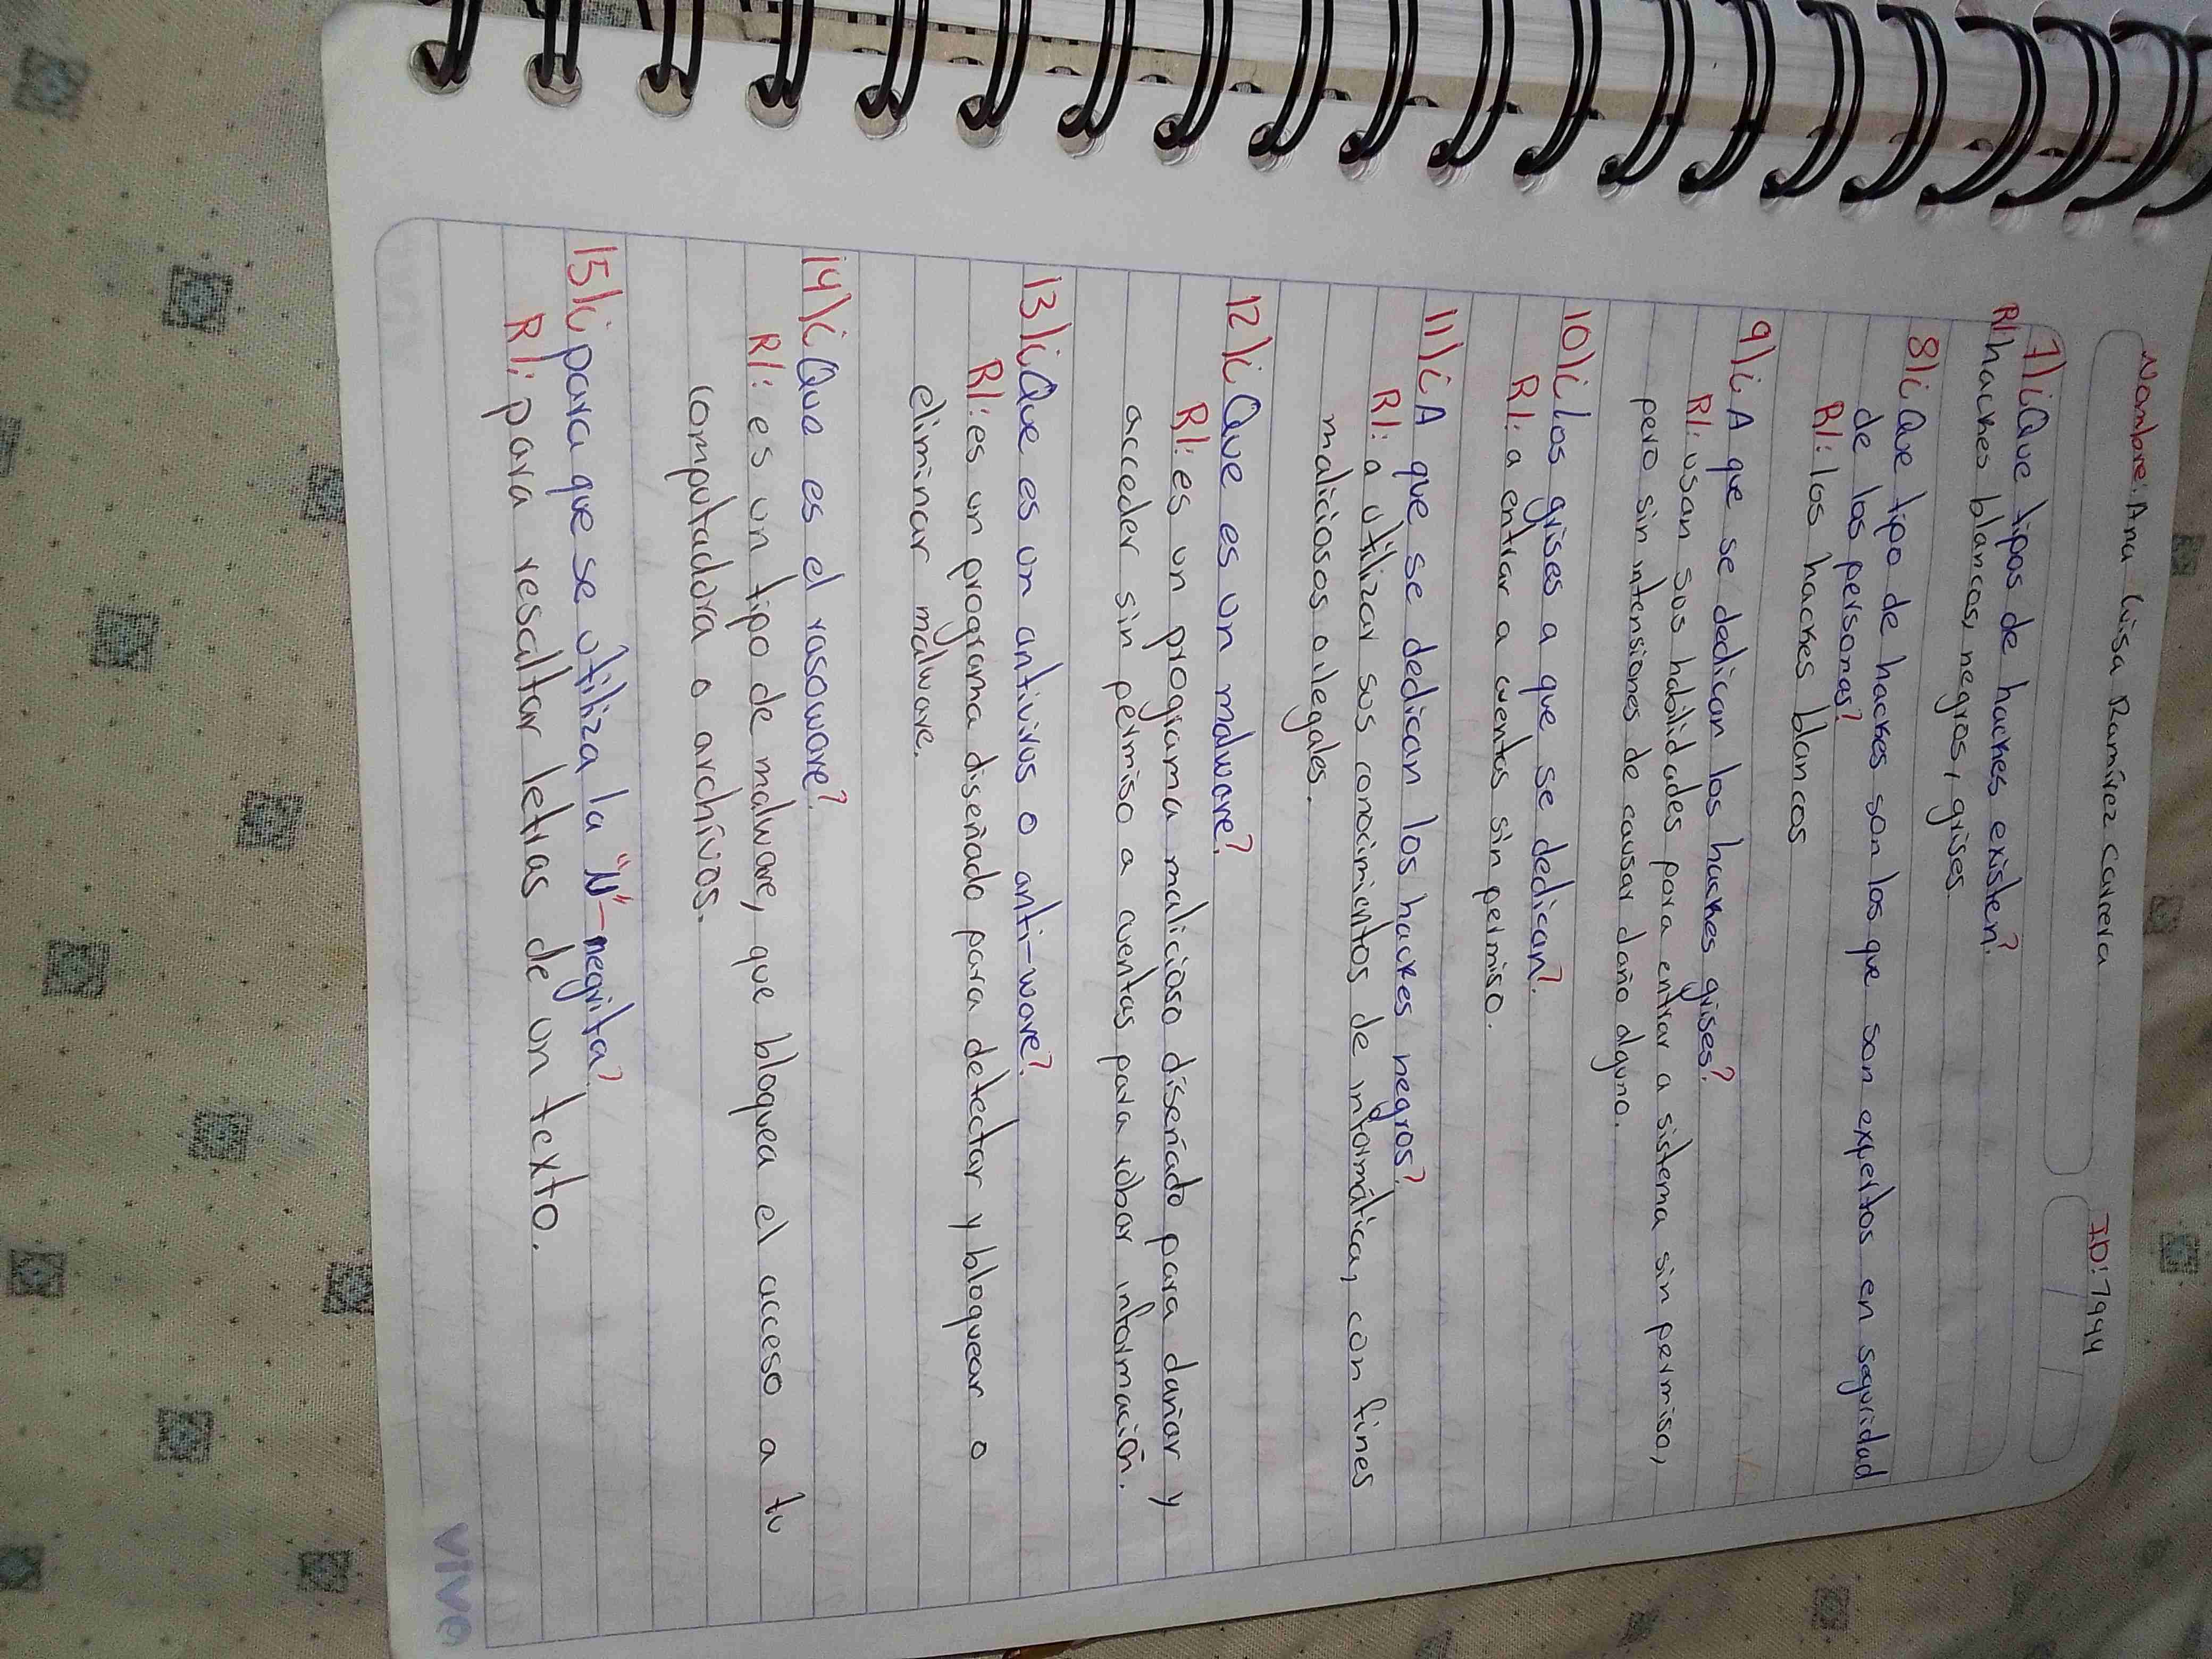 Nombre: Ana Luisa Ramírez Carrera
ID: 7994
7) ¿Que tipos de hackes existen?
R/: hackes blancos, negros, grises.
8) ¿Que tipo de hackes son los que son expertos en seguridad
de las personas?
R/: los hackes blancos
9) ¿A que se dedican los hackes grises?
R/: usan sus habilidades para entrar a sistema sin permiso,
pero sin intensiones de causar daño alguno.
10) ¿los grises a que se dedican?
R/: a entrar a cuentas sin permiso.
11) ¿A que se dedican los hackes negros?
R/: a utilizar sus conocimientos de informática, con fines
maliciosos o ilegales.
12) ¿Que es un malware?
R/: es un programa malicioso diseñado para dañar y
acceder sin permiso a cuentas para robar información.
13) ¿Que es un antivirus o anti-ware?
R/: es un programa diseñado para detectar y bloquear o
eliminar malware.
14) ¿Que es el rasoware?
R/: es un tipo de malware, que bloquea el acceso a tu
computadora o archivos.
15) ¿para que se utiliza la "N"-negrita?
R/: para resaltar letras de un texto.
vive